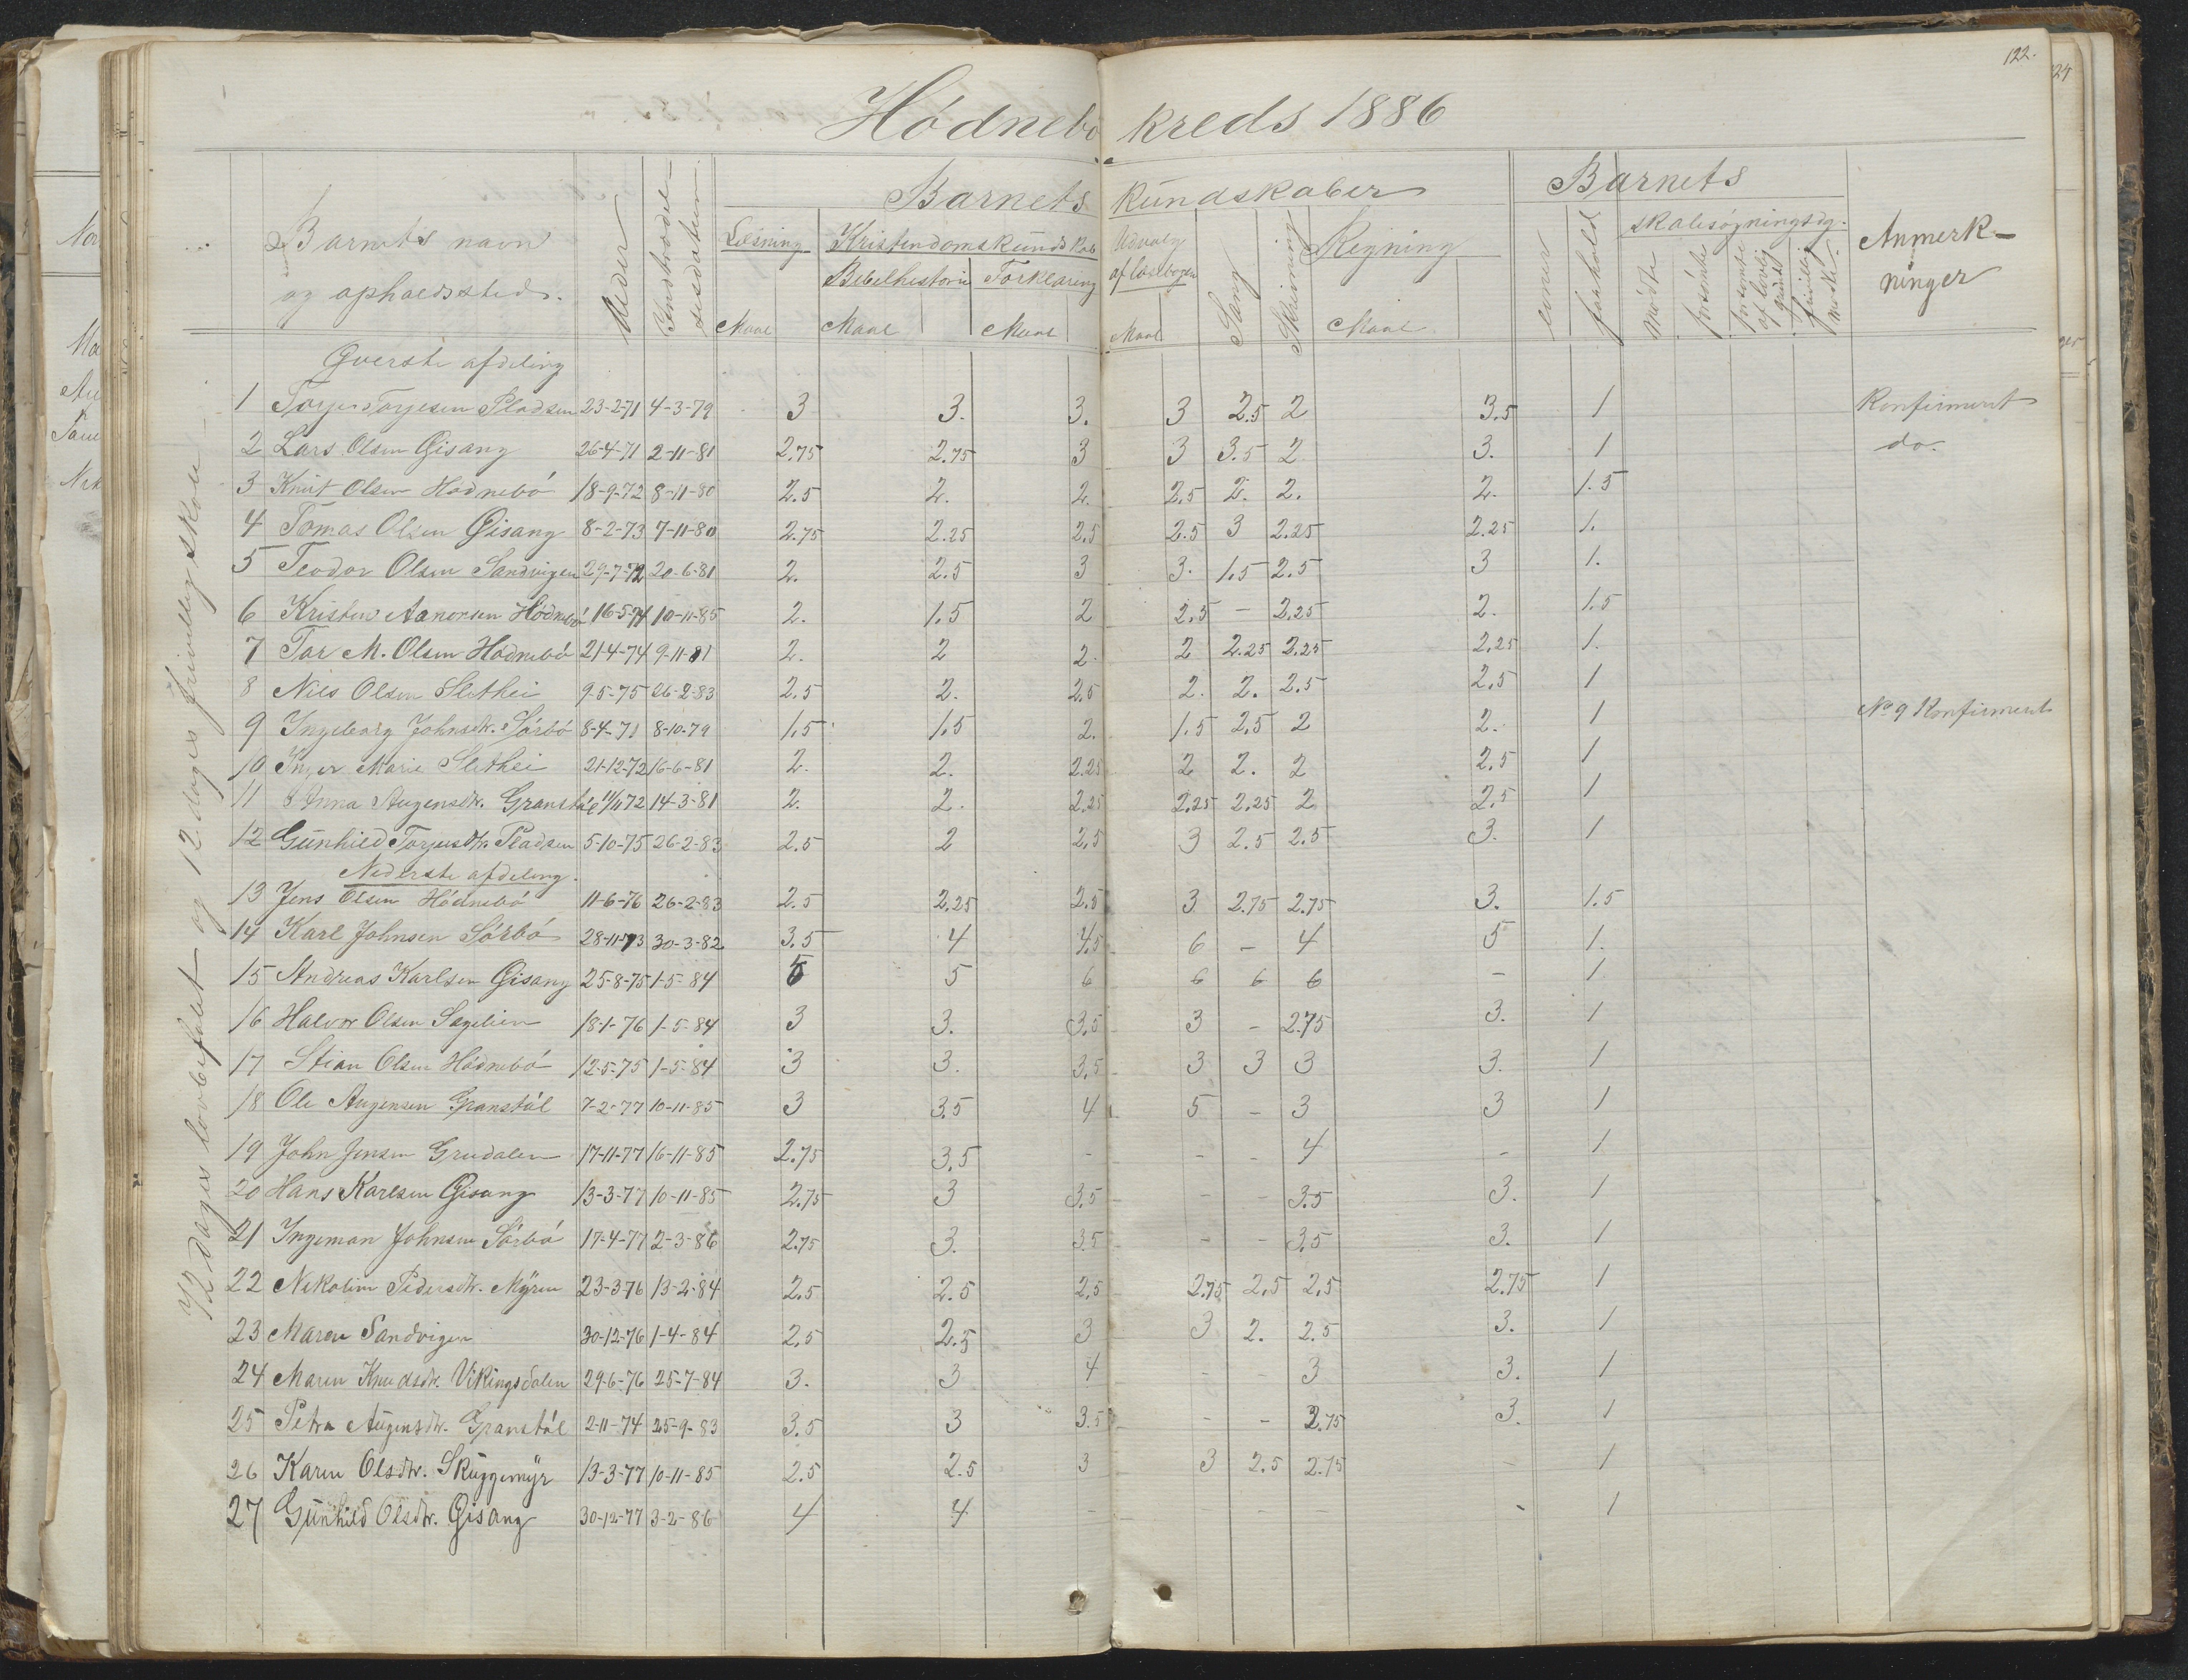 122.
Hódnebó kreds 1886
Barnets navn og opholdssted. Alder Indtrædelsesdatum Barnets kundskaber Barnets Anmerkninger
Læsning Kristendomskundskab Udvalg af læsebogen Sang Skrivning Regning evner forhold skolesøgningsdg.
Bibelhistorie Forklaring
Maal Maal Maal Maal Maal mødte forsømte forsømte af lovlig grund frivillig mødte
Øverste afdeling
1 Torjus Torjesen Pladsen 23-2-71 4-3-79 3 3. 3. 3 2.5 2 3.5 1 Konfirment
2 Lars Olsen Gisang 26-4-71 2-11-81 2.75 2.75 3 3 3.5 2 3. 1 do.
3 Knut Olsen Hódnebó 18-9-72 8-11-80 2.5 2. 2. 2.5 2. 2. 2. 1.5
4 Tomas Olsen Gisang 8-2-73 7-11-80 2.75 2.25 2.5 2.5 3 2.25 2.25 1.
5 Teodor Olsen Sandvigen 29-7-72 20-6-81 2. 2.5 3 3. 1.5 2.5 3 1.
6 Kristen Aanonsen Hódnebó 16-5-74 10-11-85 2. 1.5 2 2.5 - 2.25 2. 1.5
7 Tar M. Olsen Hódnebó 21-4-74 9-11-81 2. 2 2. 2 2.25 2.25 2.25 1.
8 Nils Olsen Slethei 9-5-75 26-2-83 2.5 2. 2.5 2. 2. 2.5 2.5 1
9 Ingeborg Johnsdtr. Sórbó 8-4-71 8-10-79 1.5 1.5 2. 1.5 2.5 2 2. 1 No 9 Konfirment
10 Inger Marie Slethei 21-12-72 16-6-81 2. 2. 2.25 2 2. 2 2.5 1
11 Anna Augensdtr. Granstól 11/11 72 14-3-81 2. 2. 2.25 2.25 2.25 2 2.5 1
12 Gunhild Torjusdtr. Pladsen 5-10-75 26-2-83 2.5 2 2.5 3 2.5 2.5 3. 1
Nederste afdeling.
13 Jens Olsen Hódnebó 11-6-76 26-2-83 2.5 2.25 2.5 3 2.75 2.75 3. 1.5
14 Karl Johnsen Sórbó 28-11-73 30-3-82 3.5 4 4.5 6 - 4 5 1.
15 Andreas Karlsen Gisang 25-8-75 1-5-84 5 5 6 6 6 6 - 1
16 Halvor Olsen Sagelien 18-1-76 1-5-84 3 3. 3.5 3 - 2.75 3. 1
17 Stian Olsen Hódnebó 12-5-75 1-5-84 3 3. 3.5 3 3 3 3. 1
18 Ole Augensen Granstól 7-2-77 10-11-85 3 3.5 4 5 - 3 3 1
19 John Jensen Grudalen 17-11-77 16-11-85 2.75 3.5 - - - 4 - 1
20 Hans Karlsen Gisang 13-3-77 10-11-85 2.75 3 3.5 - - 3.5 3. 1
21 Ingeman Johnsen Sórbó 17-4-77 2-3-86 2.75 3. 3.5 - - 3.5 3. 1
22 Nikoline Pedersdtr. Myren 23-3-76 13-2-84 2.5 2.5 2.5 2.75 2.5 2.5 2.75 1
23 Maren Sandvigen 30-12-76 1-4-84 2.5 2.5 3 3 2. 2.5 3. 1
24 Maren Knudsdtr. Vikingsdalen 29-6-76 25-7-84 3. 3 4 - - 3 3. 1
25 Petra Augensdtr. Granstól 2-11-74 25-9-83 3.5 3 3.5 - - 2.75 3. 1
26 Karen Olsdtr. Skuggemyr 13-3-77 10-11-85 2.5 2.5 3 3 2.5 2.75 - 1
27 Gunhild Olsdtr. Gisang 30-12-77 3-2-86 4 4 - - - - - 1
72 dages lovbefalet og 12 dages frivillig skole